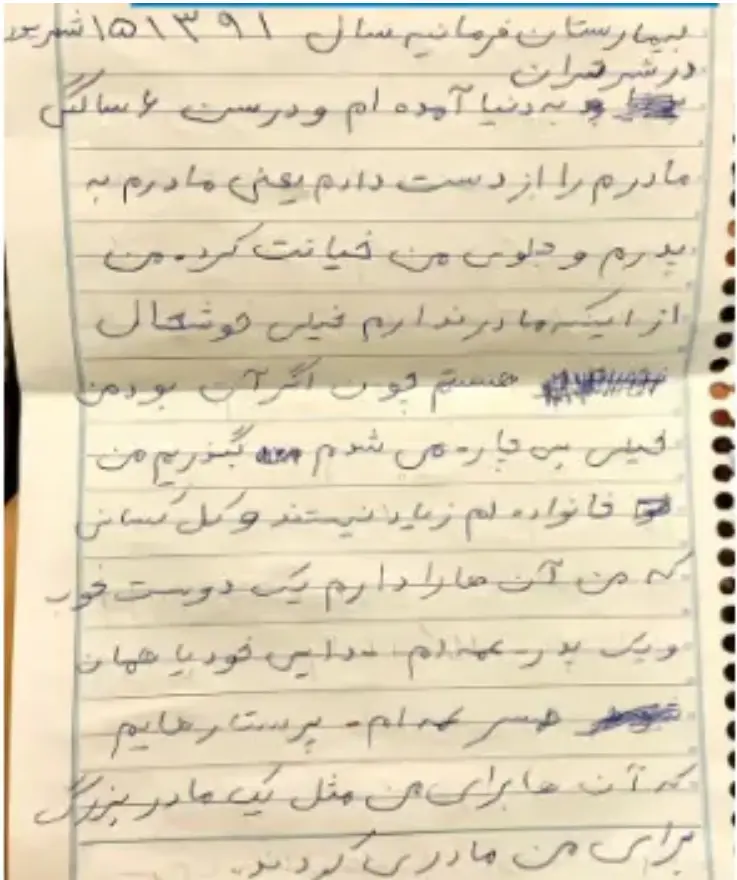 بیمارستان فرمانیه سال ۱۳۹۱ ۱۵ شهریور
در شهر تهران
به دنیا آمده ام و درست ۶ سالگی
مادرم را از دست دادم یعنی مادرم به
پدرم و جلوی من خیانت کرد. من
از اینکه مادر ندارم خیلی خوشحال
هستم چون اگر آن بود من
خیلی بی چاره می شدم بگذریم من
خانواده ام زیاد نیستند و کل کسانی
که من آن ها را دارم یک دوست خوب
و یک پدر - عمه ام - دایی خود یا همان
همسر عمه ام - پرستار هایم
که آن ها برای من مثل یک مادر بزرگ
برای من مادری کردند.